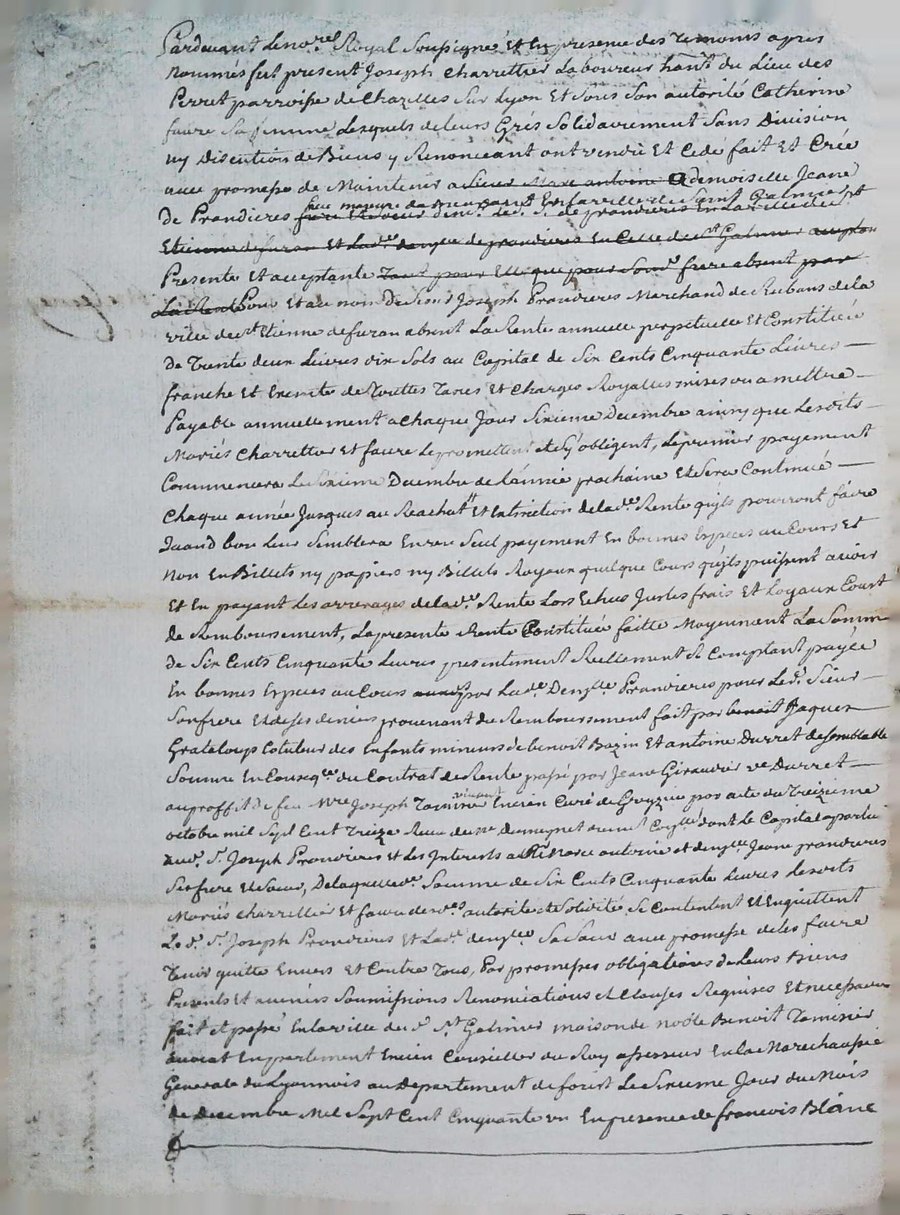 Pardevant le nore. Royal soussigné et en presence des temoins apres
nommés fut present Joseph Charrettier Laboureur hant. du Lieu des
Perret parroisse de Chazelles sur Lyon et sous son autorité Catherine
faure sa femme Lesquels de leurs Grés solidairement sans Division
ny Discution de Biens y Renonceant ont vendu et cede fait et Créé
avec promesse de Maintenir a Sieur Marc antoine demoiselle Jeane
de Prandieres fille majeure demeurant en la ville de Saint Galmier
Etienne de furan et Lad. demlle de prandieres en celle de St Galmier
Presente et acceptante Tant pour Elle que pour Sond. frere absent par
Pour et au nom De sieur Joseph Prandieres Marchand de Rubans de la
ville de St Etienne de furan absent La Rente annuelle perpetuelle et Constituée
De Trente deux Livres dix sols au Capital de Six Cents Cinquante Livres
franche et Exempte de Touttes Taxes et Charges Royalles mises ou a mettre
Payable annuellement a chaque Jour Sixieme Decembre ainsy que Lesdits
Mariés Charrettier et faure le promettent et s'y obligent, Le premier payement
Commencera Le Sixieme Decembre de L'année prochaine et sera Continué
Chaque année Jusques au Reachatt et Extinction de lade. Rente qu'ils pourront faire
Quand bon Leur Semblera En un Seul payement En bonnes Especes au Cours et
non En Billets ny papiers ny Billets Royaux quelque Cours qu'ils puissent avoir
Et En payant Les arrerages de lade. Rente Lors Echus Justes frais et Loyaux Court
de Remboursement, La presente Rente Constituée faitte Moyennant La Somme
de Six Cents Cinquante Livres presentement Reellement et Comptant payée
En bonnes Especes au Cours par Lade. Demlle. Prandieres pour Led. Sieur
Son frere et de ses deniers provenant du Remboursement fait par benoit Jaques
Grateloup Cotuteur des Enfants mineurs de benoit Bazin et antoine Durret de semblable
Somme En Conseqce. du Contrat de Rente passé par Jeane Giraudier ve Durret
au proffit de feu Mre Joseph Tamisier vivant Encien Curé de par acte du Treizieme
octobre mil Sept Cent Treize Receu dont Le Capital apartient
aud. Sr. Joseph Prandieres et Les Interests au Sr Marc antoine et demlle. Jeane prandieres
Ses frere et Soeur, De laquelle de. Somme de Six Cents Cinquante Livres Lesdits
Mariés Charrettier et faure autorité et Solidité Se Contentent et En quittent
Led. Sr. Joseph Prandieres et Lade. demlle. Sa Soeur avec promesse de les faire
Tenir quitte Envers et Contre Tous, Par promesses obligations de Leurs Biens
Presents et avenirs Soumissions Renonciations et Clauses Requises et necessaires
fait et passé En la ville du d. St. Galmier maison de noble Benoit Tamisier
avocat En parlement Encien Conseiller du Roy assesseur En la Marechaussée
Generale du Lyonnois au Departement de forist Le Sixieme Jour du Mois
de Decembre Mil Sept Cent Cinquante un En presence de francois Blanc